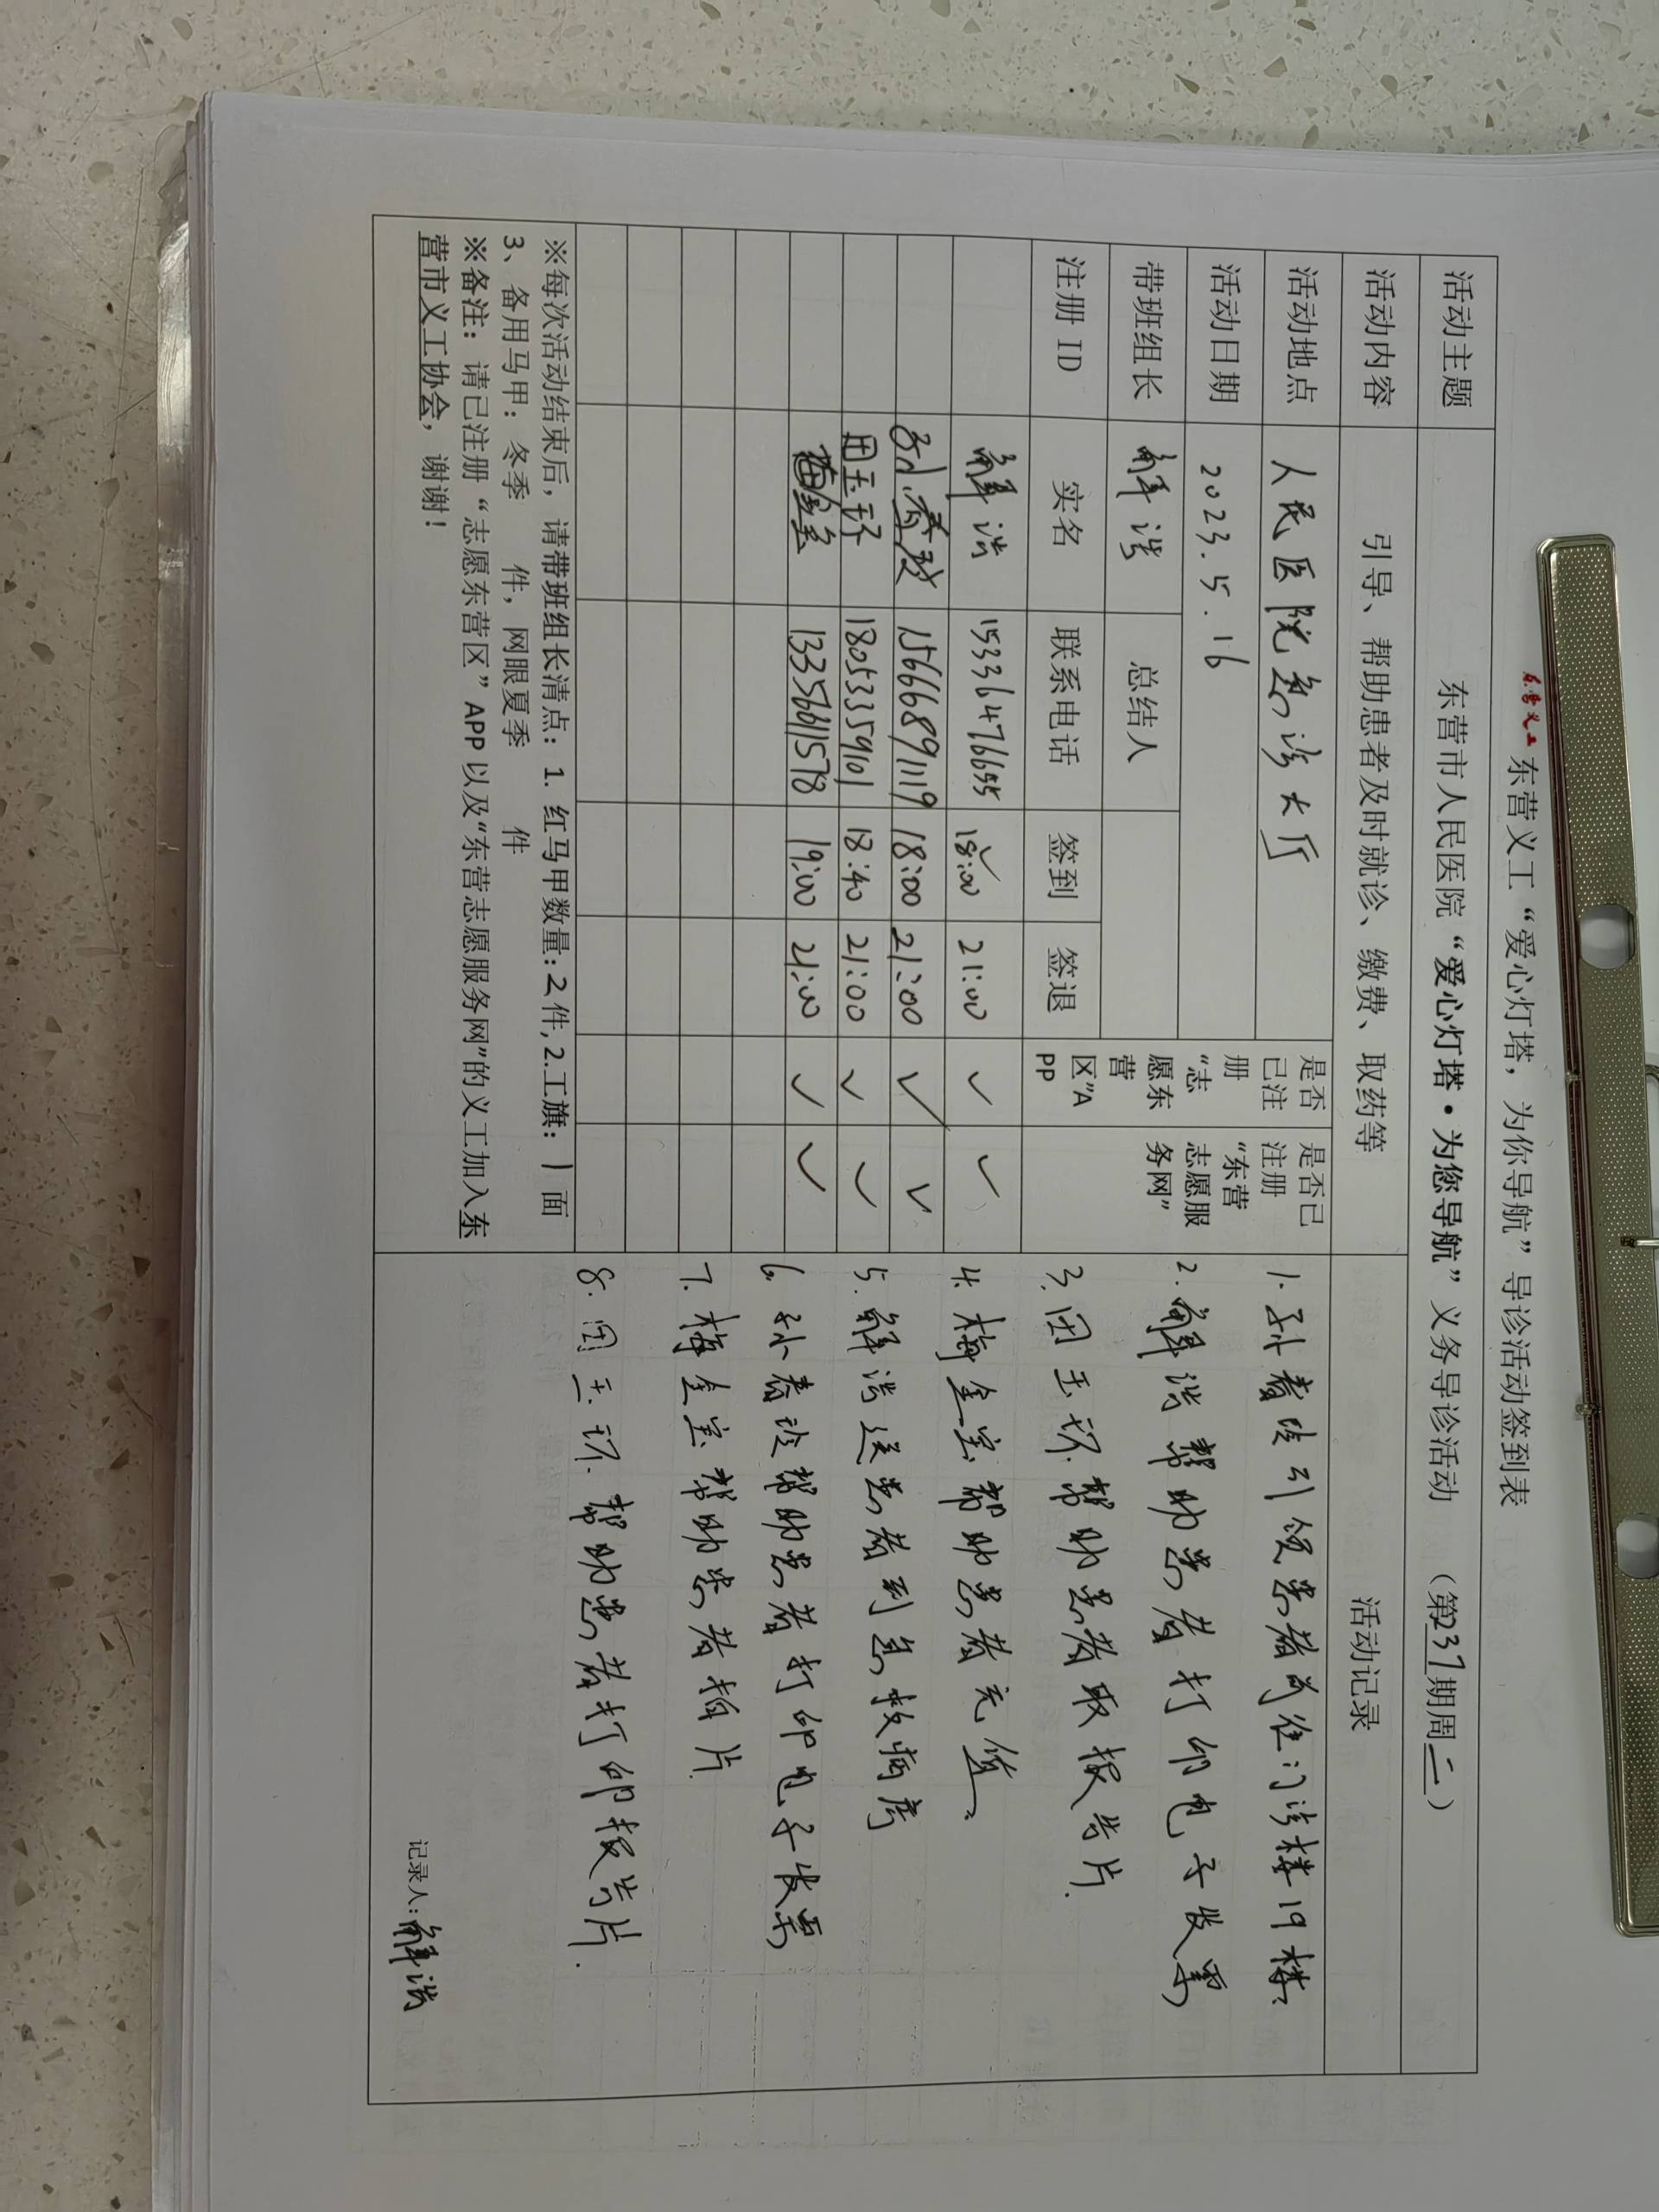 东营义工
东营义工“爱心灯塔，为你导航”导诊活动签到表
活动主题 东营市人民医院“爱心灯塔·为您导航”义务导诊活动 （第237期周二）
活动内容 引导、帮助患者及时就诊、缴费、取药等
活动地点 人民医院急诊大厅
活动日期 2023.5.16
带班组长 解浩 总结人
是否已注册“志愿东营区”APP
是否已注册“东营志愿服务网”
注册 ID 实名 联系电话 签到 签退
解浩 15336476655 18:00 21:00 ✓ ✓
孙春 15666891119 18:00 21:00 ✓ ✓
田玉环 18053359101 18:40 21:00 ✓ ✓
13356611578 19:00 21:00 ✓ ✓
※每次活动结束后，请带班组长清点：1. 红马甲数量：2件，2.工旗：1面
3、备用马甲：冬季 件，网眼夏季 件
※备注：请已注册“志愿东营区”APP 以及“东营志愿服务网”的义工加入东
营市义工协会，谢谢！
活动记录
1. 孙春 引领患者前往门诊楼19楼
2. 解浩帮助患者打印电子发票
3. 田玉环帮助患者取报告片.
4. 梅金宝帮助患者充值、
5. 解浩送患者到急救病房
6. 孙春 帮助患者打印电子发票
7. 梅金宝帮助患者拍片.
8. 田玉环帮助患者打印报告片.
记录人：解浩